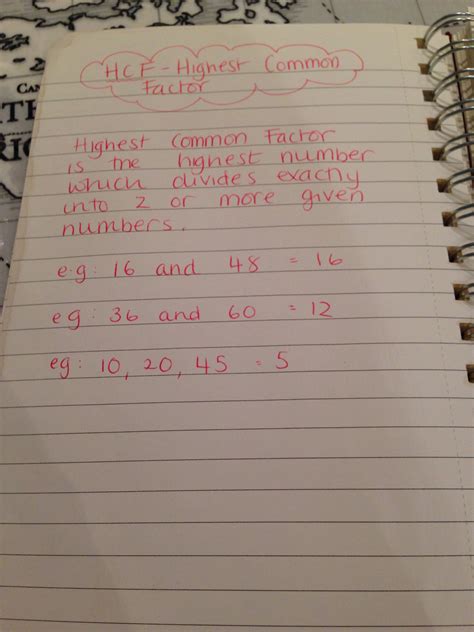 HCF - Highest Common
Factor
Highest Common Factor
is the highest number
which divides exactly
into 2 or more given
numbers.
e.g: 16 and 48 = 16
eg: 36 and 60 = 12
eg: 10, 20, 45 = 5